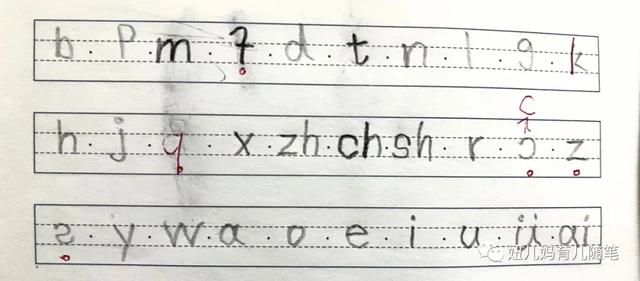 b · p · m · f · d · t · n · l · g · k
c
h · j · q · x · zh · ch · sh · r · ɔ · z
s · y · w · a · o · e · i · u · ü · ai
妞儿妈育儿随笔